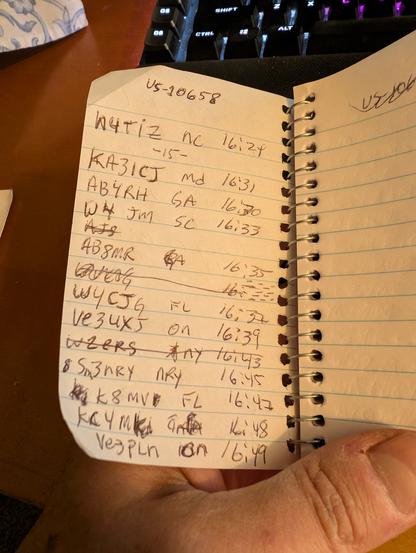 SHIFT
CTRL
ALT
US-10658
W4TIZ NC 16:24
-15-
KA3ICJ md 16:31
AB4RH GA 16:30
W4 JM SC 16:33
AB8MR GA 16:35
W4CJG FL 16:37
Ve3UXJ on 16:39
WZERS NY 16:43
Sn3NRY NRY 16:45
K8MV FL 16:47
KC4M 16:48
Ve3PLn on 16:49